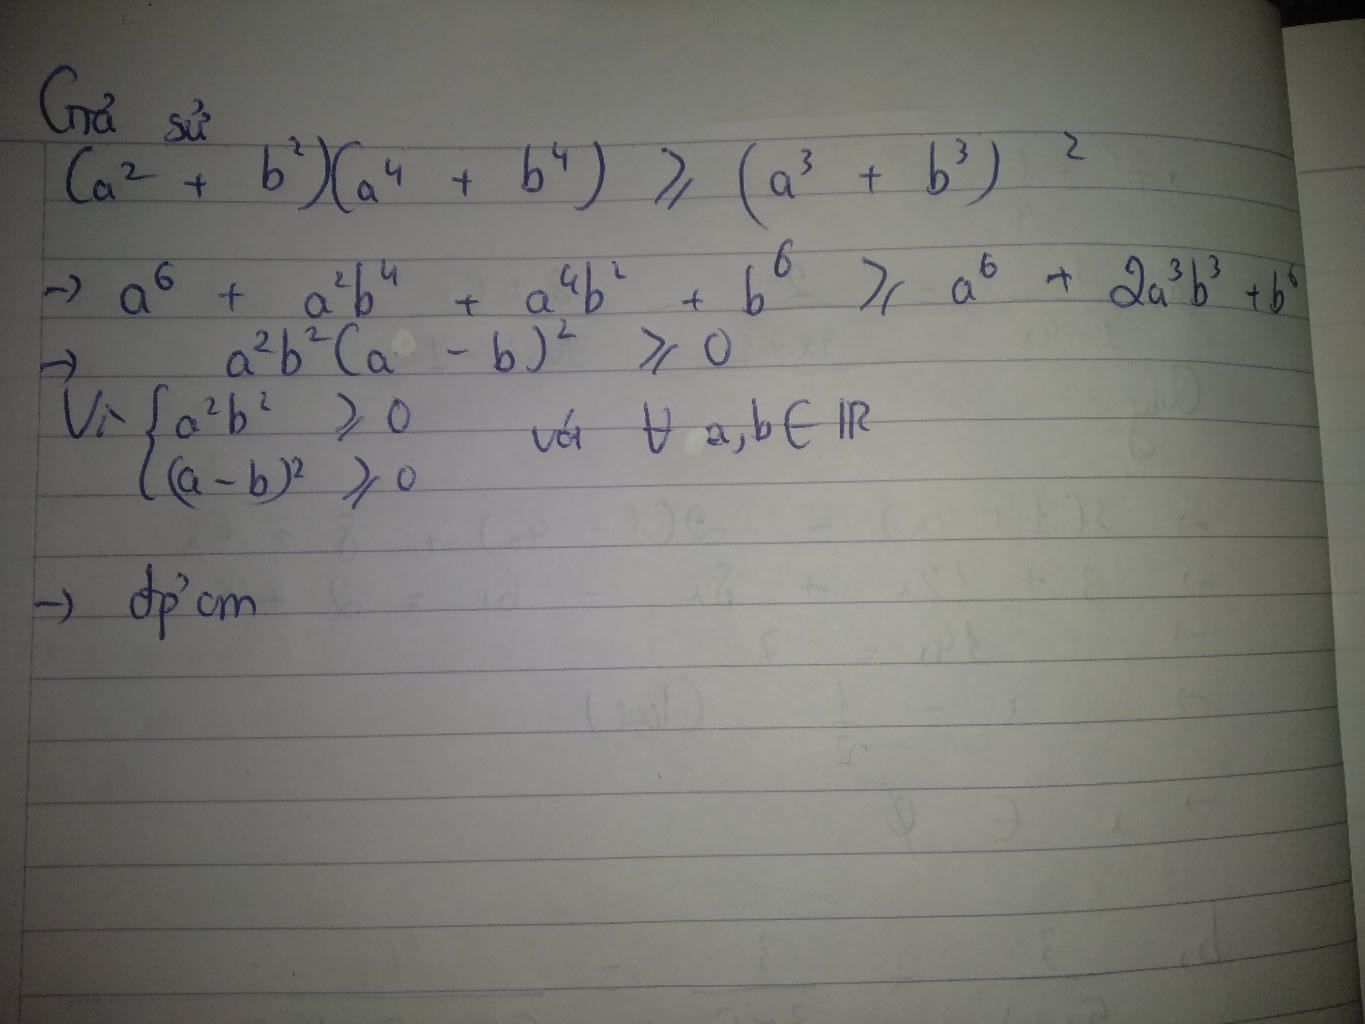 Giả sử
(a² + b²)(a⁴ + b⁴) ⩾ (a³ + b³)²
→ a⁶ + a²b⁴ + a⁴b² + b⁶ ⩾ a⁶ + 2a³b³ + b⁶
→ a²b²(a - b)² ⩾ 0
Vì { a²b² ⩾ 0 với ∀ a,b ∈ ℝ
(a - b)² ⩾ 0
→ đpcm